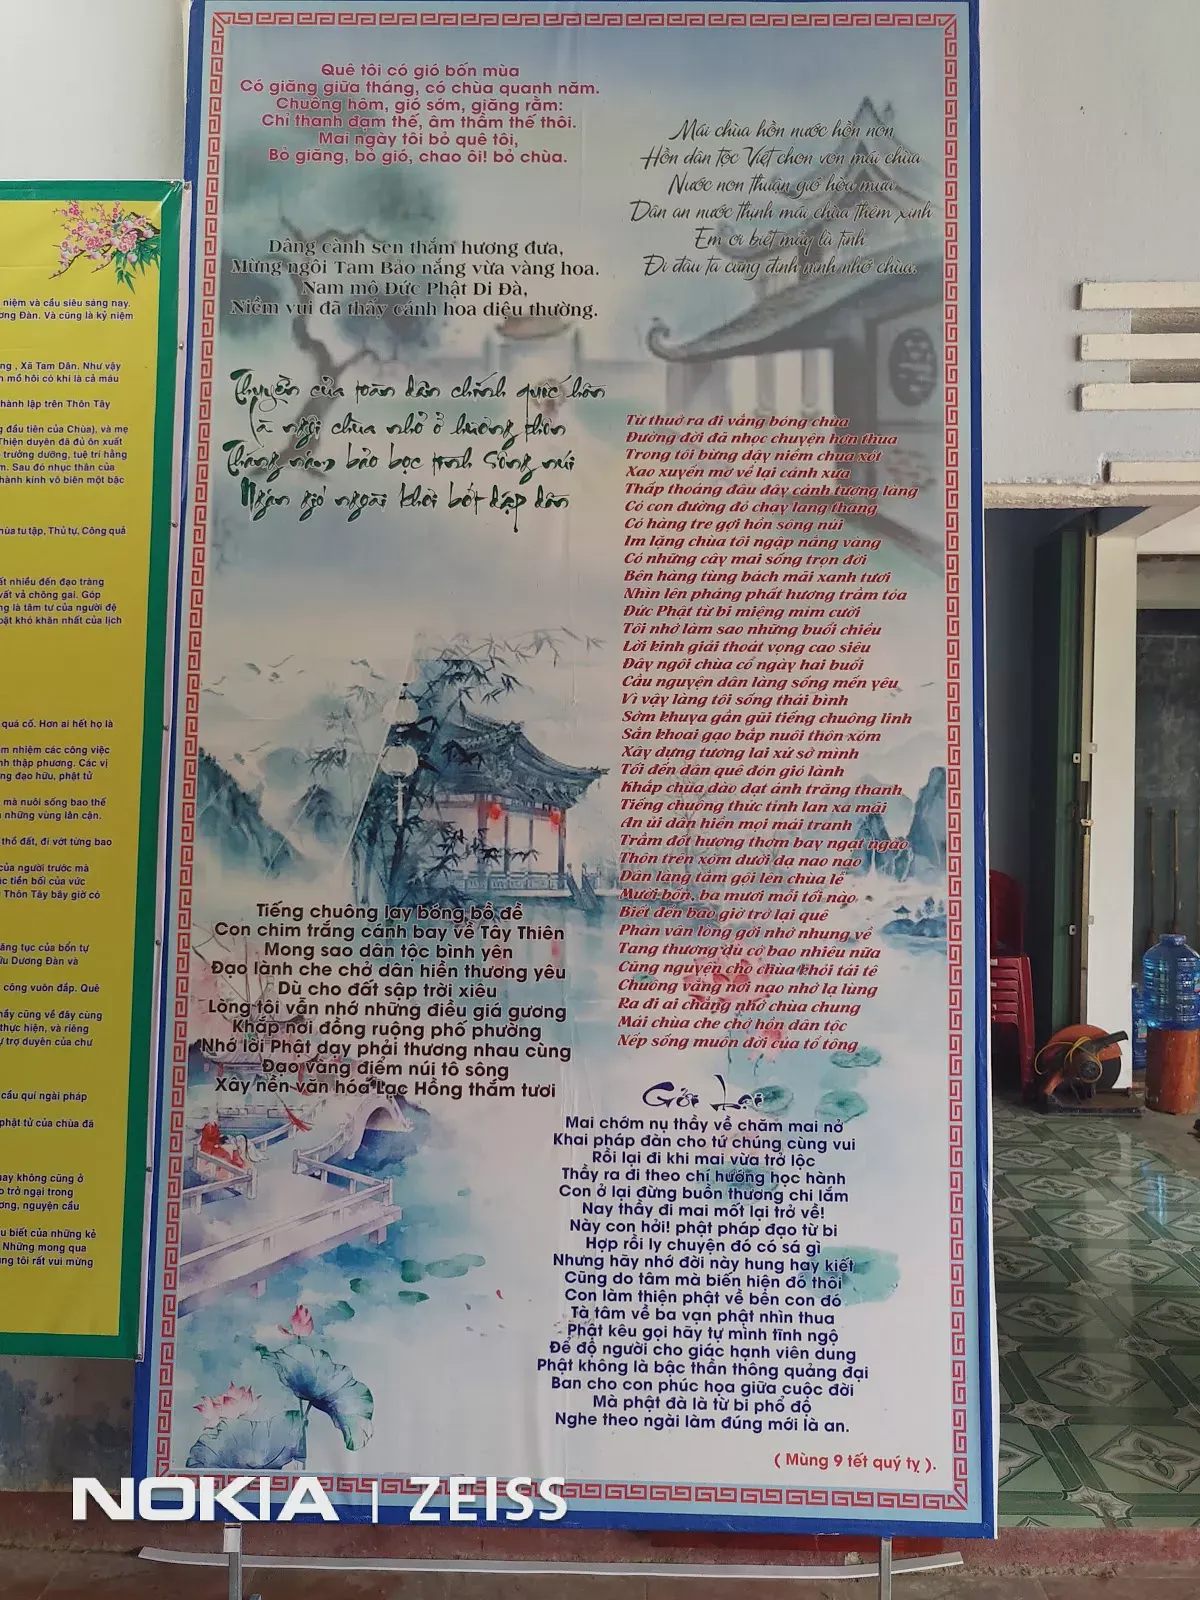 niệm và cầu siêu sáng nay.
ơng Đàn. Và cũng là kỷ niệm
ng , Xã Tam Dân. Như vậy
n mồ hôi có khi là cả máu
hành lập trên Thôn Tây
g đầu tiên của Chùa), và mẹ
Thiện duyên đã đủ ôn xuất
trưởng dưỡng, tuệ trí hằng
m. Sau đó nhục thân của
hành kính vô biên một bậc
hùa tu tập, Thủ tự, Công quả
ất nhiều đến đạo tràng
vất vả chông gai. Góp
ng là tâm tư của người đệ
oặt khó khăn nhất của lịch
quá cố. Hơn ai hết họ là
m nhiệm các công việc
nh thập phương. Các vị
ng đạo hữu, phật tử
mà nuôi sống bao thế
những vùng lân cận.
thổ đất, đi vớt từng bao
của người trước mà
c tiền bối của vức
Thôn Tây bây giờ có
ăng tục của bổn tự
ữu Dương Đàn và
công vuôn đắp. Quê
hầy cũng về đây cùng
thực hiện, và riêng
ự trợ duyên của chư
cầu qui ngài pháp
phật tử của chùa đã
nay không cũng ở
o trở ngại trong
ơng, nguyện cầu
u biết của những kẻ
Những mong qua
ng tôi rất vui mừng
Quê tôi có gió bốn mùa
Có giăng giữa tháng, có chùa quanh năm.
Chuông hôm, gió sớm, giăng rằm:
Chỉ thanh đạm thế, âm thầm thế thôi.
Mai ngày tôi bỏ quê tôi,
Bỏ giăng, bỏ gió, chao ôi! bỏ chùa.
Mái chùa hồn nước hồn non
Hồn dân tộc Việt chon von mái chùa
Nước non thuận gió hòa mưa
Dân an nước thịnh mái chùa thêm xinh
Em ơi biết mấy là tình
Đi đâu ta cũng đinh ninh nhớ chùa.
Dâng cành sen thắm hương đưa,
Mừng ngôi Tam Bảo nắng vừa vàng hoa.
Nam mô Đức Phật Di Đà,
Niềm vui đã thấy cánh hoa diệu thường.
Thuyền của toàn dân chính quốc hồn
Là ngôi chùa nhỏ ở hương thôn
Tháng năm bảo bọc tình sông núi
Ngăn gió ngoài khơi bớt dập dồn
Từ thuở ra đi vắng bóng chùa
Đường đời đã nhọc chuyện hơn thua
Trong tôi bừng dậy niềm chua xót
Xao xuyến mơ về lại cảnh xưa
Thấp thoáng đâu đây cảnh tượng làng
Có con đường đỏ chạy lang thang
Có hàng tre gợi hồn sông núi
Im lặng chùa tôi ngập nắng vàng
Có những cây mai sống trọn đời
Bên hàng tùng bách mãi xanh tươi
Nhìn lên phảng phất hương trầm tỏa
Đức Phật từ bi miệng mỉm cười
Tôi nhớ làm sao những buổi chiều
Lời kinh giải thoát vọng cao siêu
Đây ngôi chùa cổ ngày hai buổi
Cầu nguyện dân làng sống mến yêu
Vì vậy làng tôi sống thái bình
Sớm khuya gần gũi tiếng chuông linh
Sắn khoai gạo bắp nuôi thôn xóm
Xây dựng tương lai xứ sở mình
Tối đến dân quê đón gió lành
Khắp chùa dào dạt ánh trăng thanh
Tiếng chuông thức tỉnh lan xa mãi
An ủi dân hiền mọi mái tranh
Trầm đốt hương thơm bay ngạt ngào
Thôn trên xóm dưới dạ nao nao
Dân làng tắm gội lên chùa lễ
Mười bốn, ba mươi mỗi tối nào
Biết đến bao giờ trở lại quê
Phân vân lòng gởi nhớ nhung về
Tang thương dù có bao nhiêu nữa
Cũng nguyện cho chùa khỏi tái tê
Chuông vẳng nơi nao nhớ lạ lùng
Ra đi ai chẳng nhớ chùa chung
Mái chùa che chở hồn dân tộc
Nếp sống muôn đời của tổ tông
Tiếng chuông lay bóng bồ đề
Con chim trắng cánh bay về Tây Thiên
Mong sao dân tộc bình yên
Đạo lành che chở dân hiền thương yêu
Dù cho đất sập trời xiêu
Lòng tôi vẫn nhớ những điều giá gương
Khắp nơi đồng ruộng phố phường
Nhớ lời Phật dạy phải thương nhau cùng
Đạo vàng điểm núi tô sông
Xây nền văn hóa Lạc Hồng thắm tươi
Gởi Lại
Mai chớm nụ thầy về chăm mai nở
Khai pháp đàn cho tứ chúng cùng vui
Rồi lại đi khi mai vừa trở lộc
Thầy ra đi theo chí hướng học hành
Con ở lại đừng buồn thương chi lắm
Nay thầy đi mai mốt lại trở về!
Này con hỡi! phật pháp đạo từ bi
Hợp rồi ly chuyện đó có sá gì
Nhưng hãy nhớ đời này hung hay kiết
Cũng do tâm mà biến hiện đó thôi
Con làm thiện phật về bên con đó
Tà tâm về ba vạn phật nhìn thua
Phật kêu gọi hãy tự mình tĩnh ngộ
Để độ người cho giác hạnh viên dung
Phật không là bậc thần thông quảng đại
Ban cho con phúc họa giữa cuộc đời
Mà phật đà là từ bi phổ độ
Nghe theo ngài làm đúng mới là an.
( Mùng 9 tết quý tỵ ).
NOKIA | ZEISS